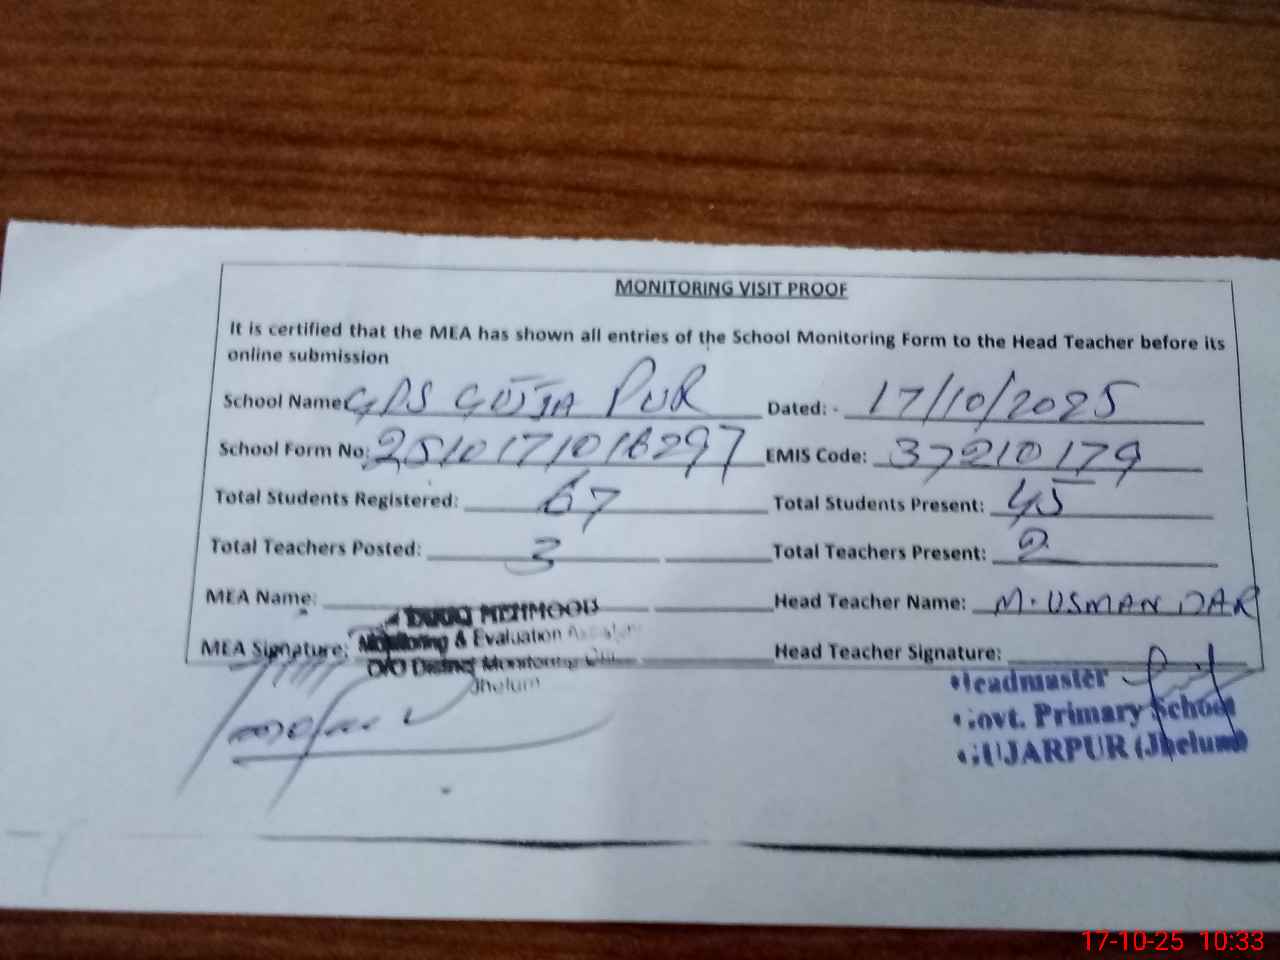 MONITORING VISIT PROOF
It is certified that the MEA has shown all entries of the School Monitoring Form to the Head Teacher before its
online submission
School Name: GPS GUJJA PUR Dated: - 17/10/2025
School Form No: 25101710 297 EMIS Code: 37210179
Total Students Registered: 67 Total Students Present: 45
Total Teachers Posted: 3 Total Teachers Present: 2
MEA Name: MEHMOOD Head Teacher Name: M. USMAN DAR
MEA Signature: Monitoring & Evaluation Head Teacher Signature:
O/O District Monitoring
Jhelum
Headmaster
Govt. Primary School
GUJARPUR (Jhelum)
17-10-25 10:33